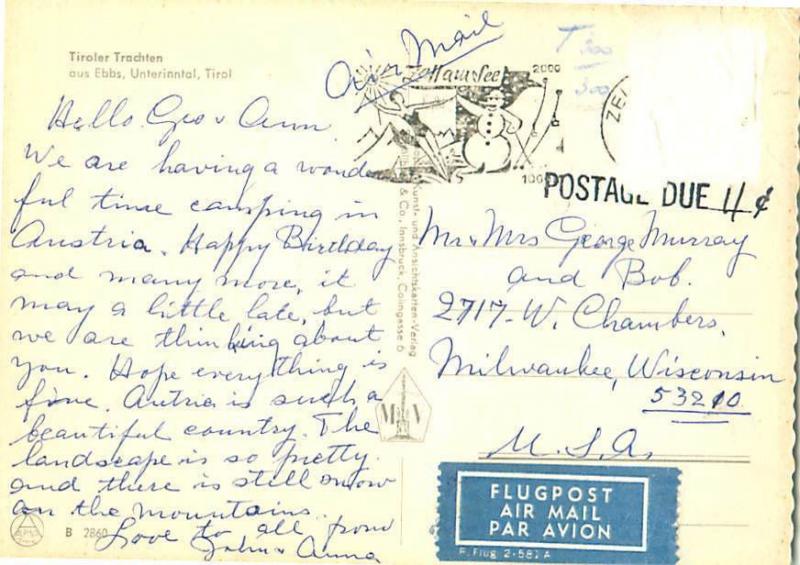 Tiroler Trachten
aus Ebbs, Unterinntal, Tirol
Air Mail
Zell am See
2000
T 300
300
ZE
POSTAGE DUE 11 ¢
Hello Geo & Ann
We are having a wonde
ful time camping in
Austria. Happy Birthday
and many more, it
may a little late, but
we are thinking about
you. Hope everything is
fine. Autria is such a
beautiful country. The
landscape is so pretty
and there is still snow
on the mountains.
Love to all from
John & Anna
B 2860
Kunst- und Ansichtskarten-Verlag
& Co., Innsbruck, Colingasse 6
M V
Mr & Mrs George Murray
and Bob.
2717-W. Chambers,
Milwaukee, Wisconsin
53210.
U.S.A.
FLUGPOST
AIR MAIL
PAR AVION